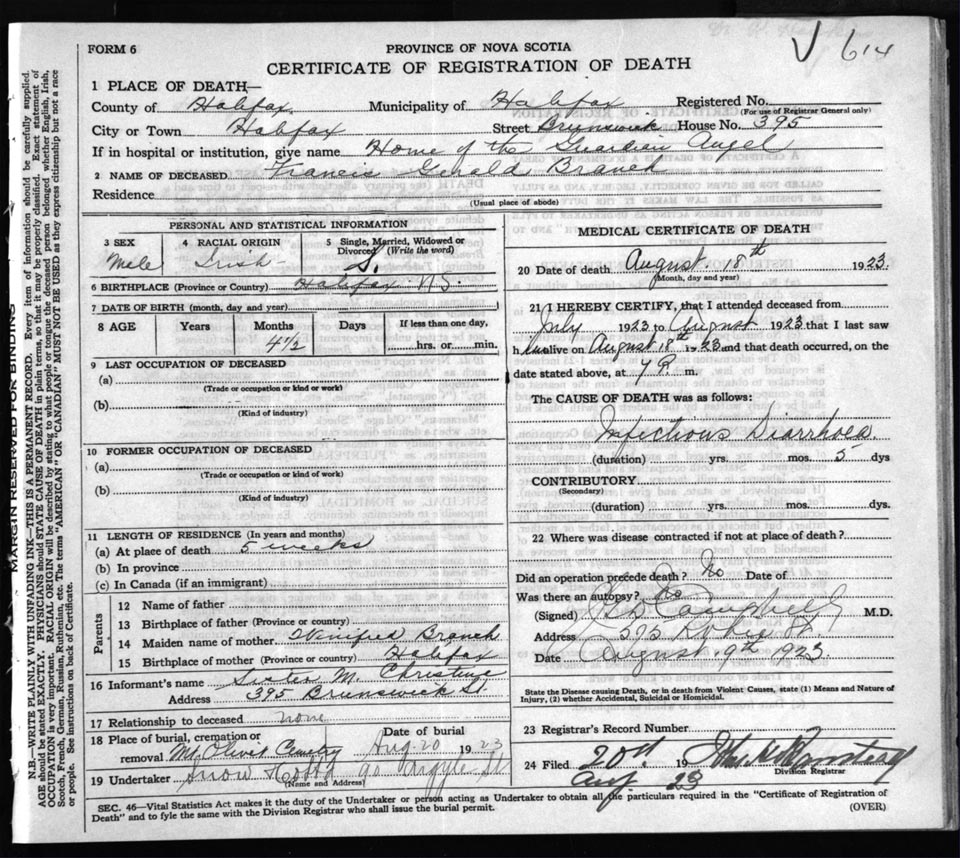 614
FORM 6
PROVINCE OF NOVA SCOTIA
CERTIFICATE OF REGISTRATION OF DEATH
1 PLACE OF DEATH—
County of Halifax Municipality of Halifax Registered No.
(For use of Registrar General only)
City or Town Halifax Street Brunswick House No. 395
If in hospital or institution, give name Home of the Guardian Angel
2 NAME OF DECEASED Francis Gerald Branch
Residence
(Usual place of abode)
PERSONAL AND STATISTICAL INFORMATION
3 SEX Male
4 RACIAL ORIGIN Irish
5 Single, Married, Widowed or Divorced (Write the word) S.
6 BIRTHPLACE (Province or Country) Halifax N.S.
7 DATE OF BIRTH (month, day and year)
8 AGE Years Months Days If less than one day,
4 1/2 hrs. or min.
9 LAST OCCUPATION OF DECEASED
(a)
(Trade or occupation or kind or work)
(b)
(Kind of industry)
10 FORMER OCCUPATION OF DECEASED
(a)
(Trade or occupation or kind of work)
(b)
(Kind of industry)
11 LENGTH OF RESIDENCE (In years and months)
(a) At place of death 5 weeks
(b) In province
(c) In Canada (if an immigrant)
Parents
12 Name of father
13 Birthplace of father (Province or country)
14 Maiden name of mother Winifred Branch
15 Birthplace of mother (Province or country) Halifax
16 Informant's name Sister M. Christine
Address 395 Brunswick St.
17 Relationship to deceased none
18 Place of burial, cremation or removal Mt. Olivet Cemetry Date of burial Aug. 20 1923
19 Undertaker Snow & 90 Argyle St
(Name and Address)
MEDICAL CERTIFICATE OF DEATH
20 Date of death August 18th 1923.
(Month, day and year)
21 I HEREBY CERTIFY, that I attended deceased from
July 1923 to August 1923 that I last saw
h im alive on August 18th 1923 and that death occurred, on the
date stated above, at 7 P. m.
The CAUSE OF DEATH was as follows:
Infectious Diarrhoea.
(duration) yrs. mos. 5 dys
CONTRIBUTORY
(Secondary)
(duration) yrs. mos. dys
22 Where was disease contracted if not at place of death?
Did an operation precede death? No Date of
Was there an autopsy? No
(Signed) Campbell M.D.
Address 395 St.
Date August 9th 1923.
State the Disease causing Death, or in death from Violent Causes, state (1) Means and Nature of
Injury, (2) whether Accidental, Suicidal or Homicidal.
23 Registrar's Record Number
24 Filed 20th Aug 19 23
Division Registrar
SEC. 46—Vital Statistics Act makes it the duty of the Undertaker or person acting as Undertaker to obtain all the particulars required in the "Certificate of Registration of
Death" and to fyle the same with the Division Registrar who shall issue the burial permit.
(OVER)
MARGIN RESERVED FOR BINDING
N.B.—WRITE PLAINLY WITH UNFADING INK—THIS IS A PERMANENT RECORD. Every item of information should be carefully supplied.
AGE should be stated EXACTLY. PHYSICIANS should STATE CAUSE OF DEATH in plain terms, so that it may be properly classified. Exact statement of
OCCUPATION is very important. RACIAL ORIGIN will be described by stating to what people or tongue the deceased person belonged whether English, Irish,
Scotch, French, German, Russian, Ruthenian, etc. The terms "AMERICAN" OR "CANADIAN" MUST NOT BE USED as they express citizenship but not a race
or people. See instructions on back of Certificate.